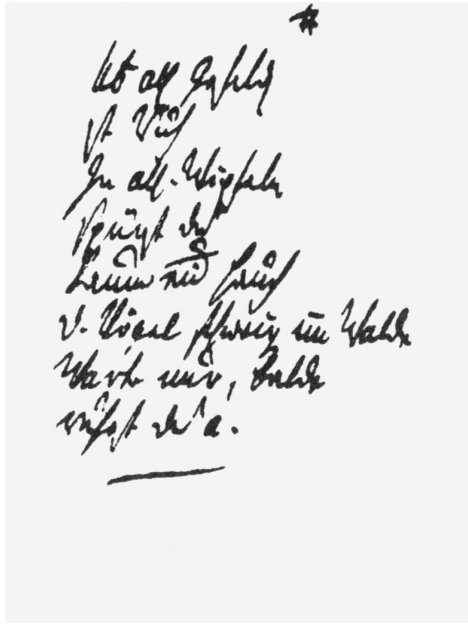 Üb all Gipfeln
ist Ruh
In all. Wipfeln
spürst du
kaum ein Hauch
D. Vögel schweig im Walde
Warte nur, balde
ruhst du a.